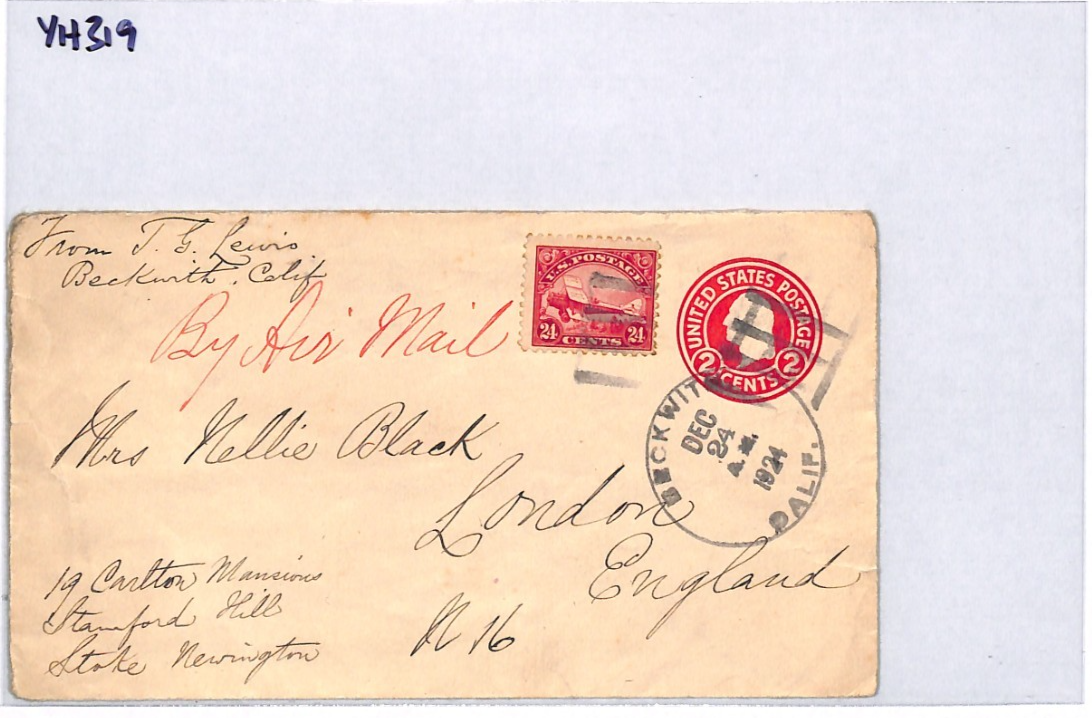 YH319
From T. G. Lewis
Beckwith, Calif
By Air Mail
U.S. POSTAGE
24 24
CENTS
UNITED STATES POSTAGE
2 CENTS 2
BECKWITH CALIF.
DEC
24
A.M.
1924
Mrs Nellie Black
London
England
19 Carlton Mansions
Stamford Hill
Stoke Newington
N 16